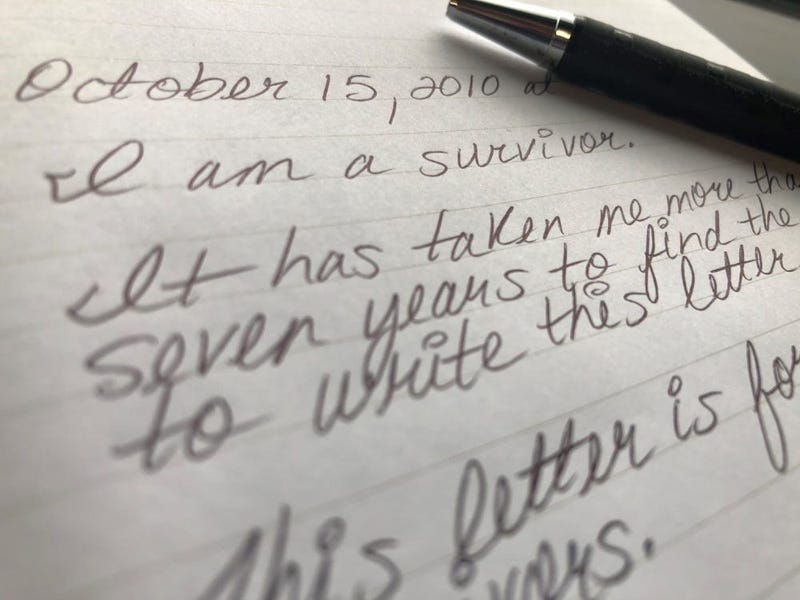 October 15, 2010
I am a survivor.
It has taken me more
seven years to find the
to write this letter
This letter is